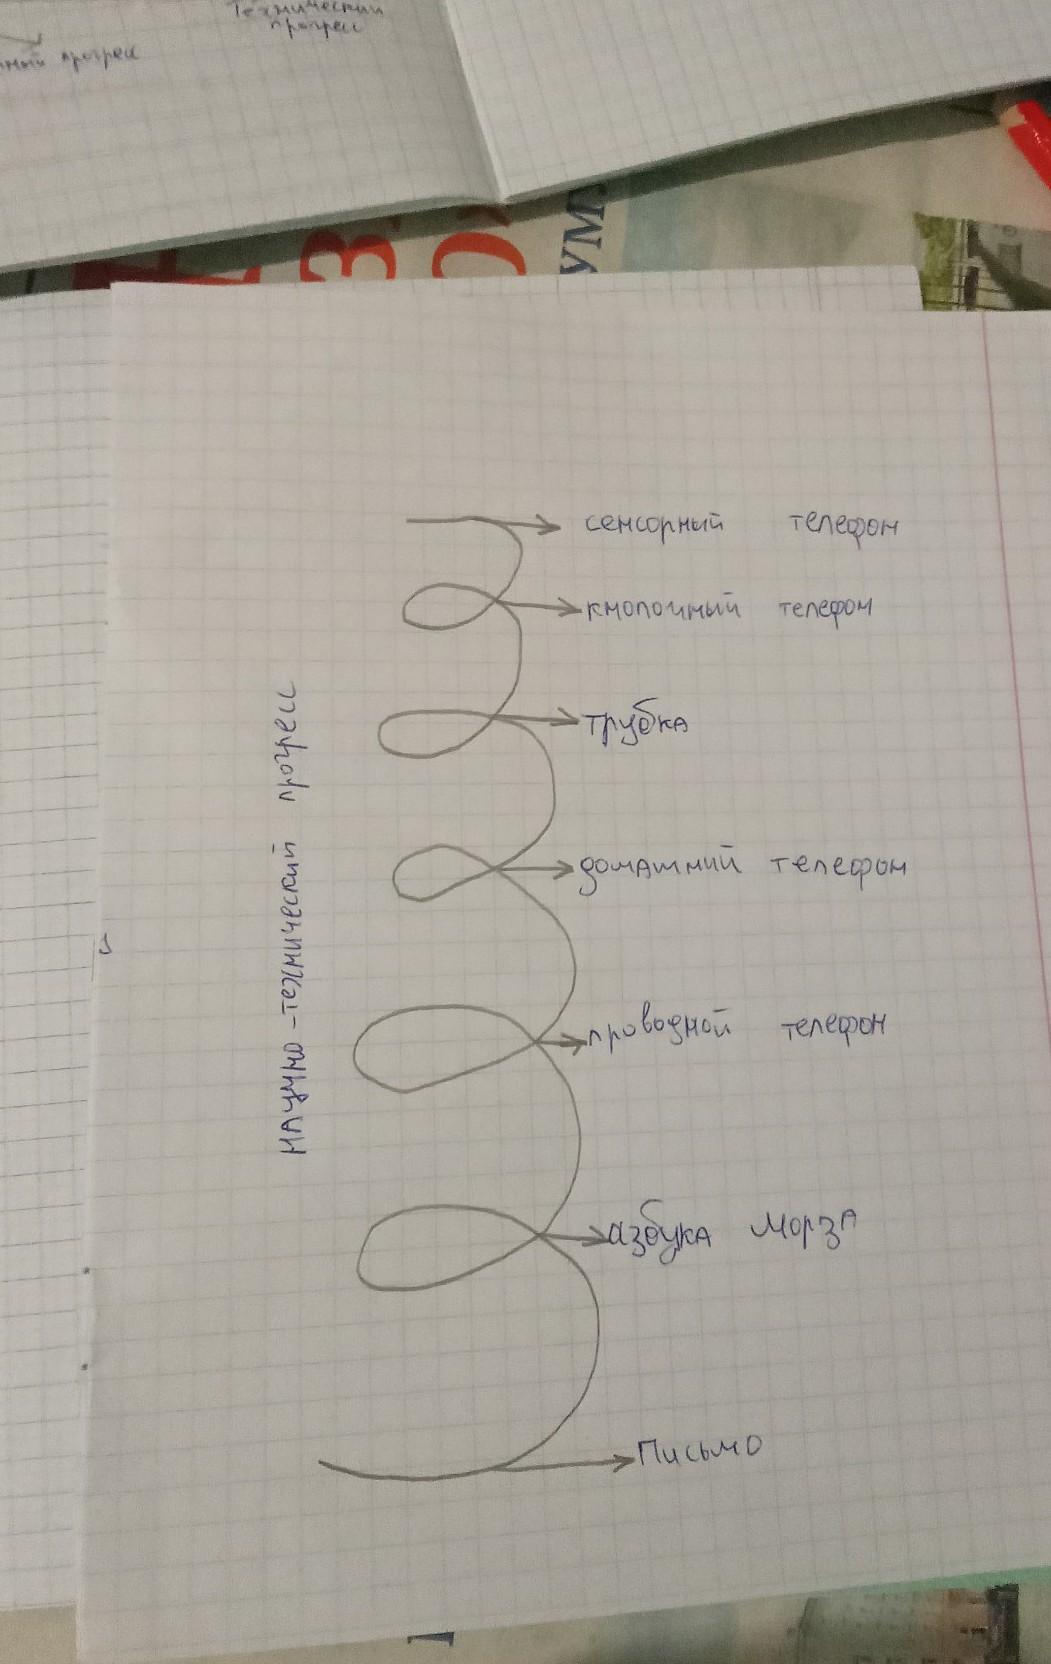 Технический
прогресс
прогресс
УМ
сенсорный телефон
кнопочный телефон
трубка
домашний телефон
проводной телефон
азбука Морза
Письмо
научно-технический прогресс